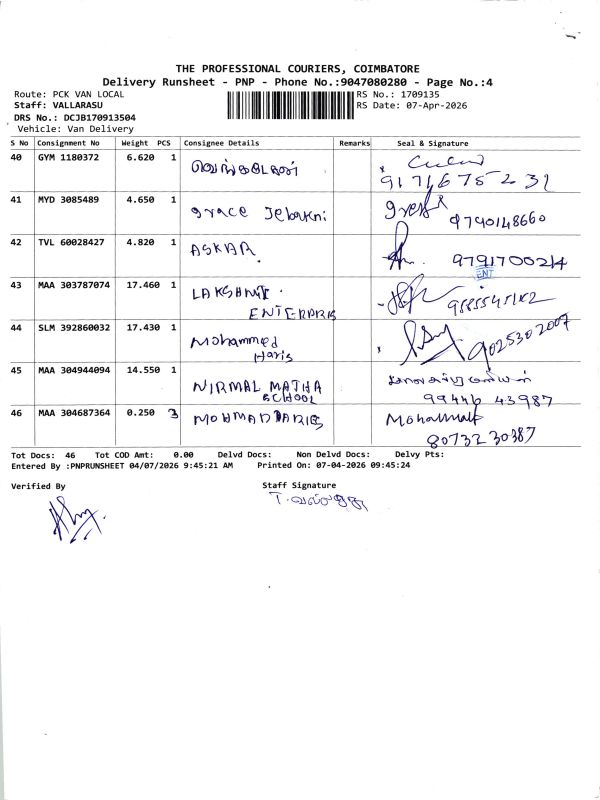 THE PROFESSIONAL COURIERS, COIMBATORE
Delivery Runsheet - PNP - Phone No.:9047080280 - Page No.:4
Route: PCK VAN LOCAL RS No.: 1709135
Staff: VALLARASU RS Date: 07-Apr-2026
DRS No.: DCJB170913504
Vehicle: Van Delivery
S No Consignment No Weight PCS Consignee Details Remarks Seal & Signature
40 GYM 1180372 6.620 1
41 MYD 3085489 4.650 1 Grace Jebakni
9790148660
42 TVL 60028427 4.820 1 ASKAR.
9791700214
ENT
43 MAA 303787074 17.460 1 LAKSHMI
ENTERPRIS
44 SLM 392860032 17.430 1 Mohammed
Haris 9025302007
45 MAA 304944094 14.550 1 NIRMAL MATHA
SCHOOL 99446 43987
46 MAA 304687364 0.250 3 MOHMAD DARIS
80732 30387
Tot Docs: 46 Tot COD Amt: 0.00 Delvd Docs: Non Delvd Docs: Delvy Pts:
Entered By :PNPRUNSHEET 04/07/2026 9:45:21 AM Printed On: 07-04-2026 09:45:24
Verified By Staff Signature